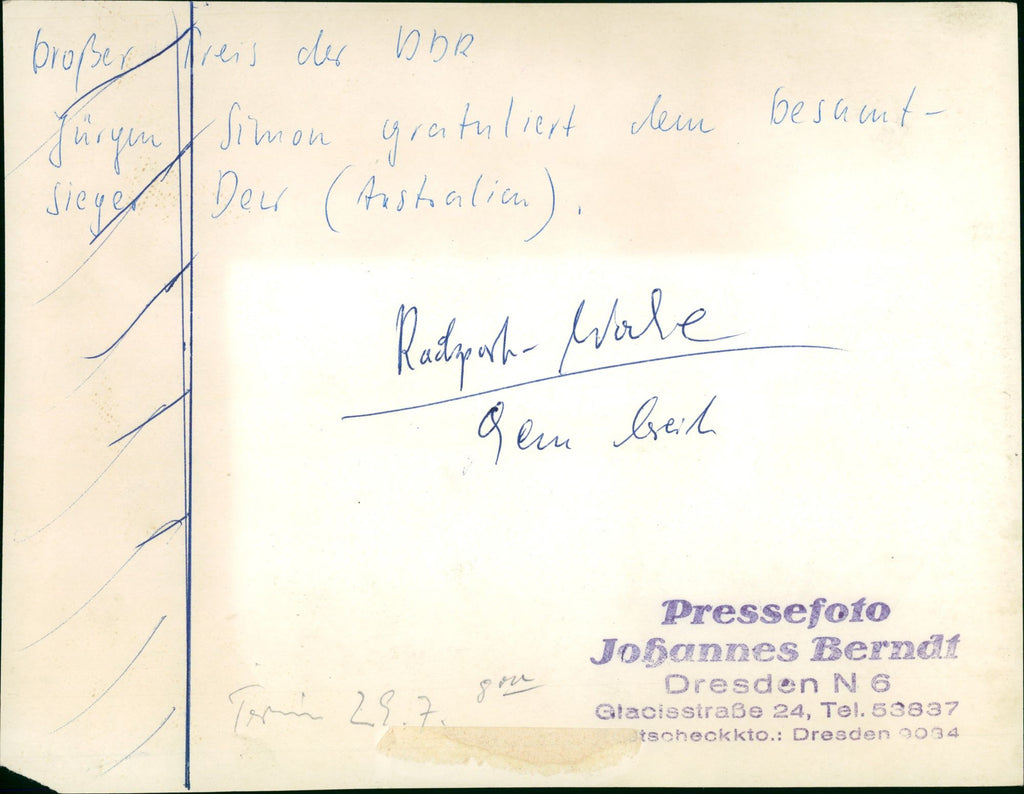 Großer Preis der DDR
Jürgen Simon gratuliert dem Gesamt-
sieger Dew (Australien).
Radsport- Woche
Termin 29.7.
Pressefoto
Johannes Berndt
Dresden N 6
Glacisstraße 24, Tel. 53837
tscheckkto.: Dresden